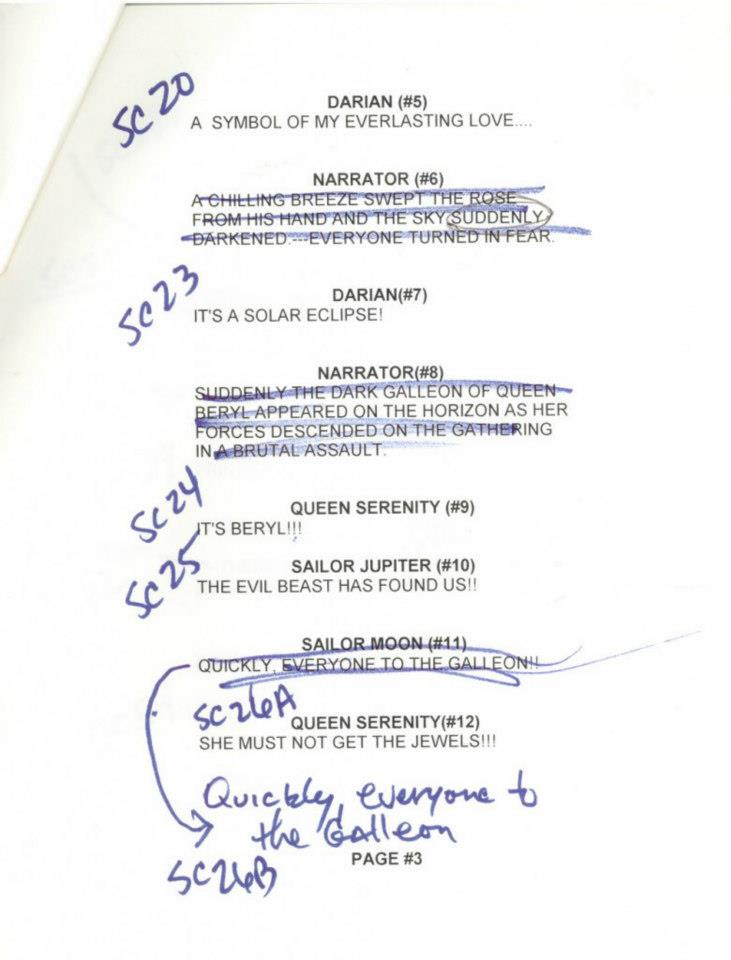 SC20
DARIAN (#5)
A SYMBOL OF MY EVERLASTING LOVE....
NARRATOR (#6)
A CHILLING BREEZE SWEPT THE ROSE
FROM HIS HAND AND THE SKY SUDDENLY
DARKENED.---EVERYONE TURNED IN FEAR.
SC23
DARIAN(#7)
IT'S A SOLAR ECLIPSE!
NARRATOR(#8)
SUDDENLY THE DARK GALLEON OF QUEEN
BERYL APPEARED ON THE HORIZON AS HER
FORCES DESCENDED ON THE GATHERING
IN A BRUTAL ASSAULT.
SC24
QUEEN SERENITY (#9)
IT'S BERYL!!!
SC25
SAILOR JUPITER (#10)
THE EVIL BEAST HAS FOUND US!!
SAILOR MOON (#11)
QUICKLY, EVERYONE TO THE GALLEON!!
SC26A
QUEEN SERENITY(#12)
SHE MUST NOT GET THE JEWELS!!!
Quickly, everyone to
the Galleon
PAGE #3
SC26B